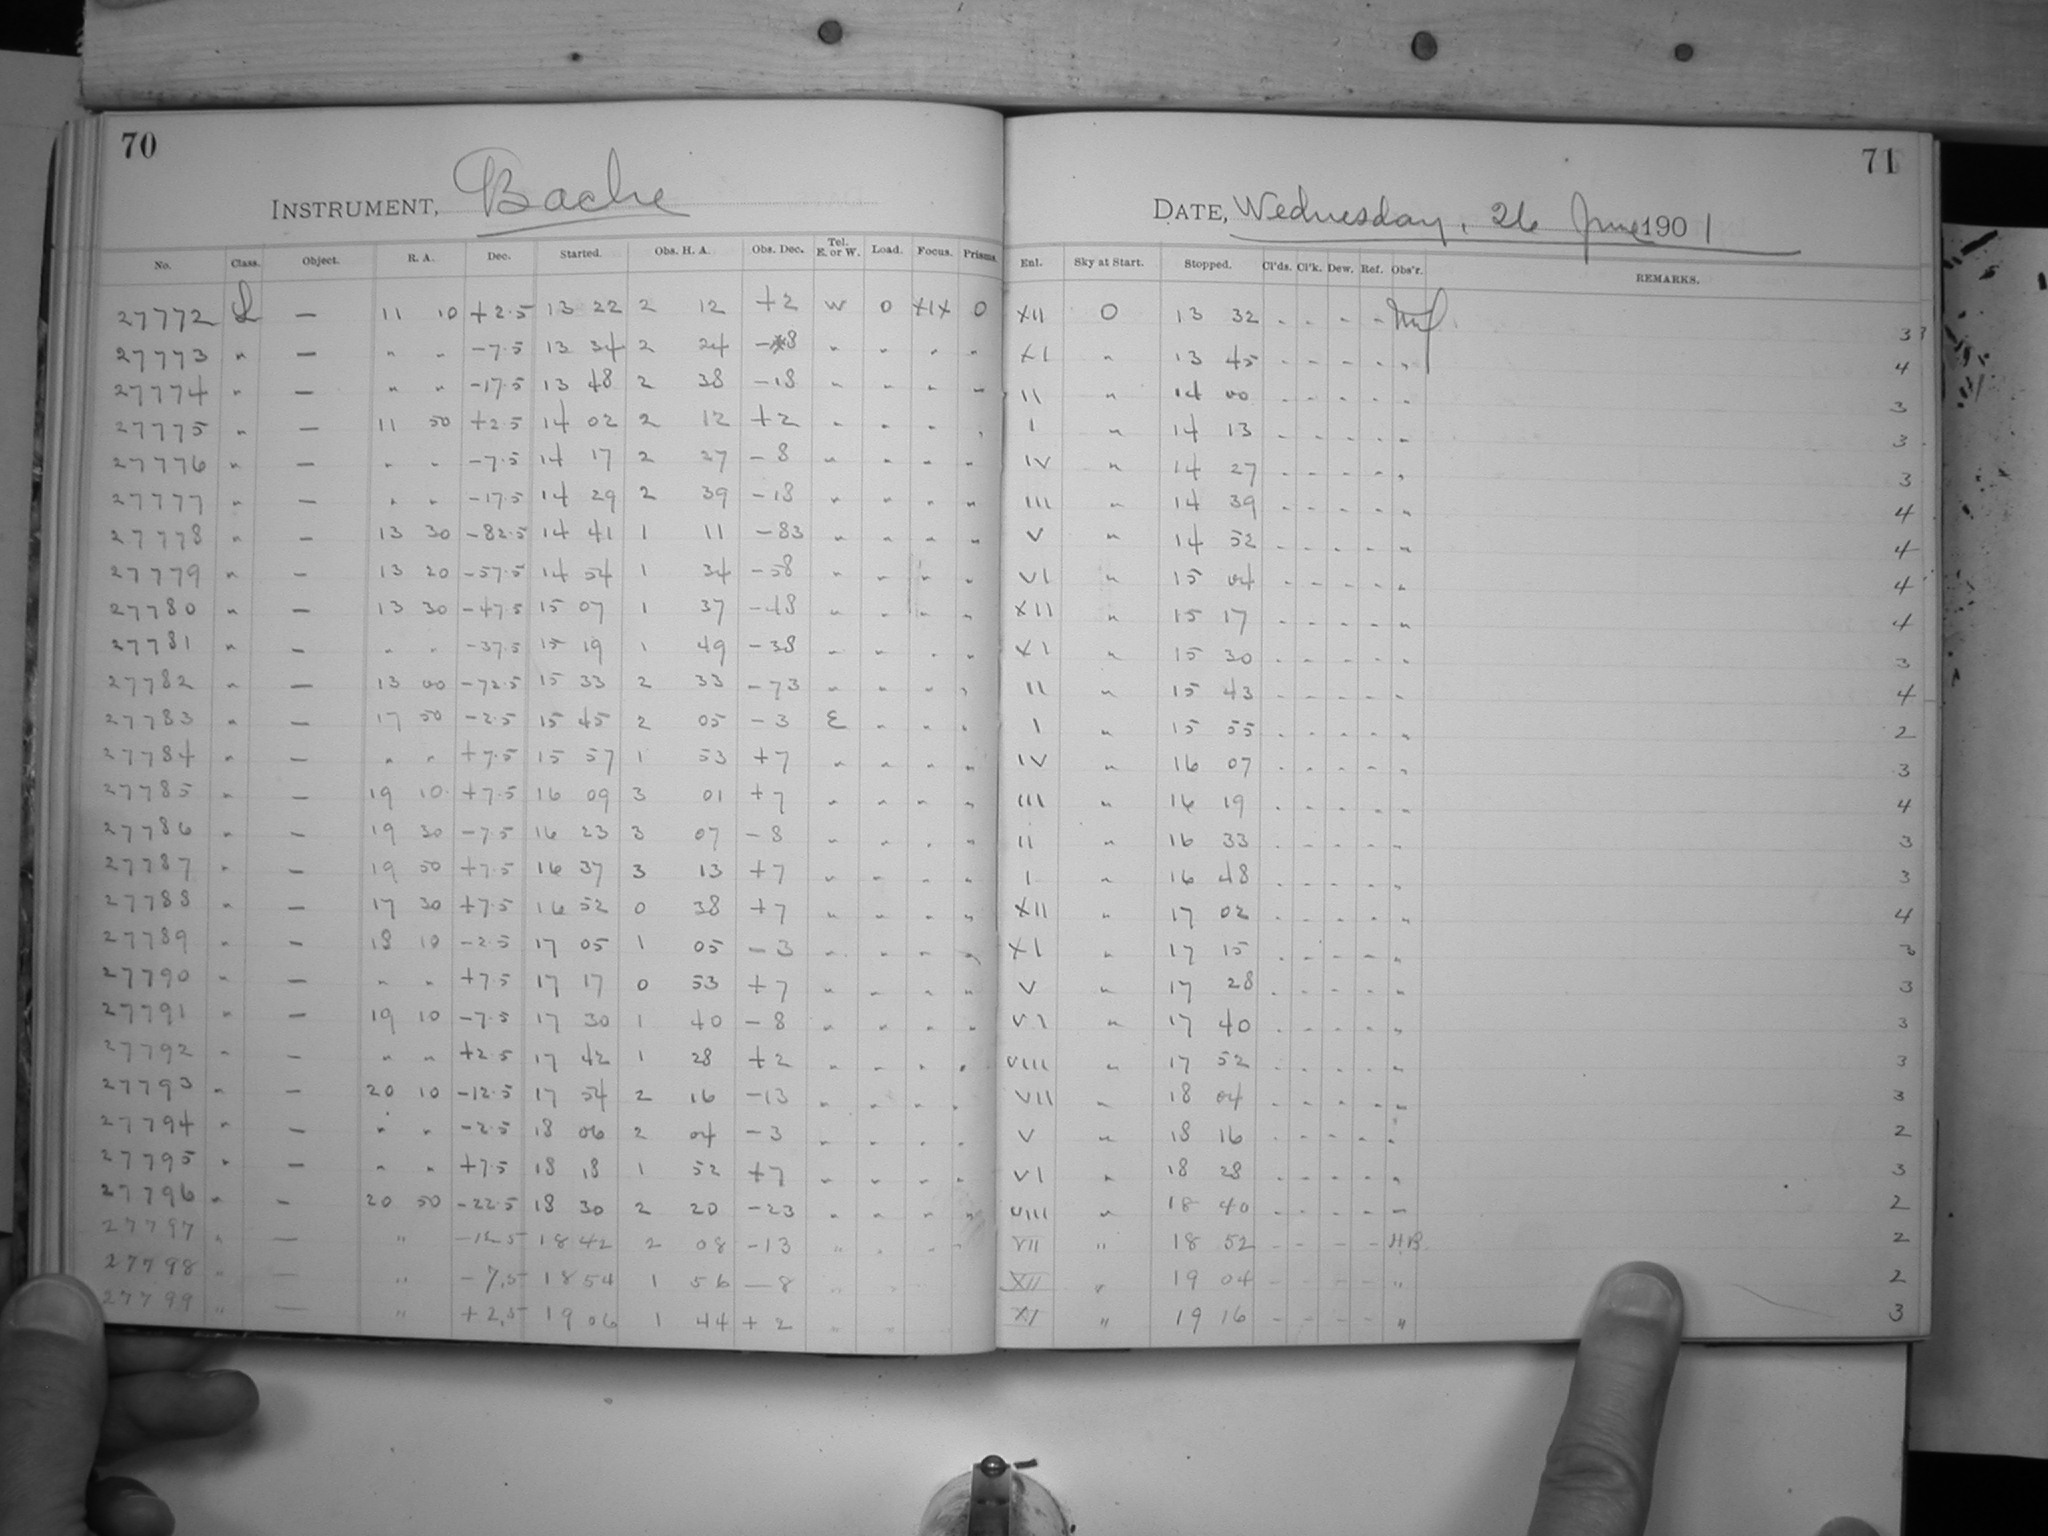 70
INSTRUMENT, Bache
No. Class. Object. R. A. Dec. Started. Obs. H. A. Obs. Dec. Tel. E. or W. Load. Focus. Prisms.
27772 L — 11 10 +2.5 13 22 2 12 +2 W 0 XIX 0
27773 " — " " -7.5 13 34 2 24 -8 " " " "
27774 " — " " -17.5 13 48 2 38 -18 " " " "
27775 " — 11 50 +2.5 14 02 2 12 +2 " " " "
27776 " — " " -7.5 14 17 2 27 -8 " " " "
27777 " — " " -17.5 14 29 2 39 -18 " " " "
27778 " — 13 30 -82.5 14 41 1 11 -83 " " " "
27779 " — 13 20 -57.5 14 54 1 34 -58 " " " "
27780 " — 13 30 -47.5 15 07 1 37 -48 " " " "
27781 " — " " -37.5 15 19 1 49 -38 " " " "
27782 " — 13 00 -72.5 15 33 2 33 -73 " " " "
27783 " — 17 50 -2.5 15 45 2 05 -3 E " " "
27784 " — " " +7.5 15 57 1 53 +7 " " " "
27785 " — 19 10 +7.5 16 09 3 01 +7 " " " "
27786 " — 19 30 -7.5 16 23 3 07 -8 " " " "
27787 " — 19 50 +7.5 16 37 3 13 +7 " " " "
27788 " — 17 30 +7.5 16 52 0 38 +7 " " " "
27789 " — 18 10 -2.5 17 05 1 05 -3 " " " "
27790 " — " " +7.5 17 17 0 53 +7 " " " "
27791 " — 19 10 -7.5 17 30 1 40 -8 " " " "
27792 " — " " +2.5 17 42 1 28 +2 " " " "
27793 " — 20 10 -12.5 17 54 2 16 -13 " " " "
27794 " — " " -2.5 18 06 2 04 -3 " " " "
27795 " — " " +7.5 18 18 1 52 +7 " " " "
27796 " — 20 50 -22.5 18 30 2 20 -23 " " " "
27797 " — " -12.5 18 42 2 08 -13 " " " "
27798 " — " -7.5 18 54 1 56 -8 " "
27799 " — " +2.5 19 06 1 44 +2 " "
71
DATE, Wednesday, 26 June 1901
Enl. Sky at Start. Stopped. Cl'ds. Cl'k. Dew. Ref. Obs'r. REMARKS.
XII 0 13 32 - - - - 3
XI " 13 45 - - - - " 4
II " 14 00 - - - - " 3
I " 14 13 - - - - " 3
IV " 14 27 - - - - " 3
III " 14 39 - - - - " 4
V " 14 52 - - - - " 4
VI " 15 04 - - - - " 4
XII " 15 17 - - - - " 4
XI " 15 30 - - - - " 3
II " 15 43 - - - - " 4
I " 15 55 - - - - " 2
IV " 16 07 - - - - " 3
III " 16 19 - - - - " 4
II " 16 33 - - - - " 3
I " 16 48 - - - - " 3
XII " 17 02 - - - - " 4
XI " 17 15 - - - - " 3
V " 17 28 - - - - " 3
VI " 17 40 - - - - " 3
VIII " 17 52 - - - - " 3
VII " 18 04 - - - - " 3
V " 18 16 - - - - " 2
VI " 18 28 - - - - " 3
VIII " 18 40 - - - - " 2
VII " 18 52 - - - - H.B. 2
XII " 19 04 - - - - " 2
XI " 19 16 - - - - " 3